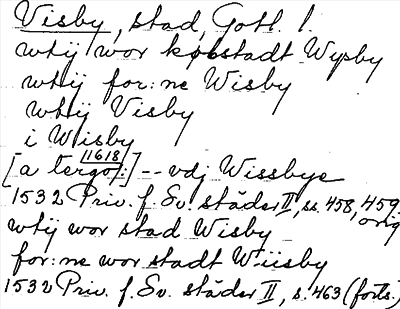 Visby, stad, Gotl. l.
wthij wor købstadt Wysby
wthij for:ne Wisby
wthij Visby
i Wisby
[a tergo 1618/:] -- vdj Wissbye
1532 Priv. f. Sv. städer II, ss. 458, 459 orig
wtij wor stad Wisby
for:ne wor stadt Wiisby
1532 Priv. f. Sv. städer II, s. 463 (forts.)